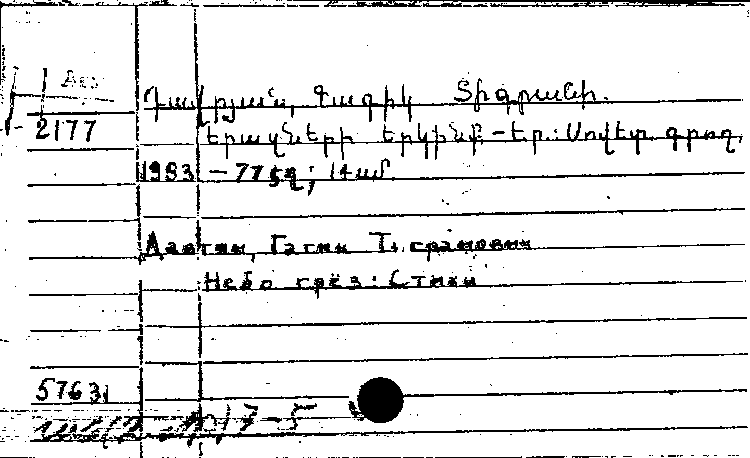 2177
Դավթյան, Գագիկ Տիգրանի.
Երազների երկինք - Եր.: Սովետ. գրող,
1983 - 77 էջ; 14 սմ.
Давтян, Гагик Тигранович
Небо грёз: Стихи
57631
17-5